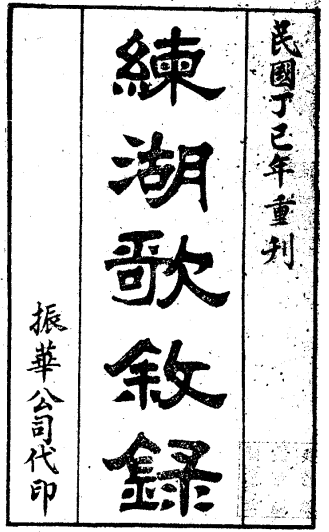 民國丁巳年重刋
練湖歌敘録
振華公司代印